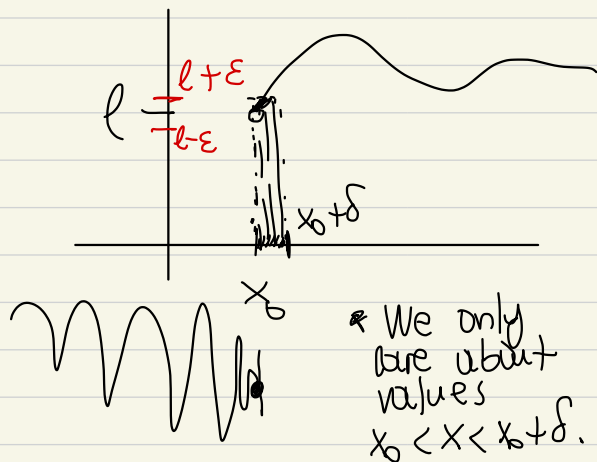 l+ε
l
l-ε
x₀+δ
x₀
* We only
care about
values
x₀ < x < x₀+δ.